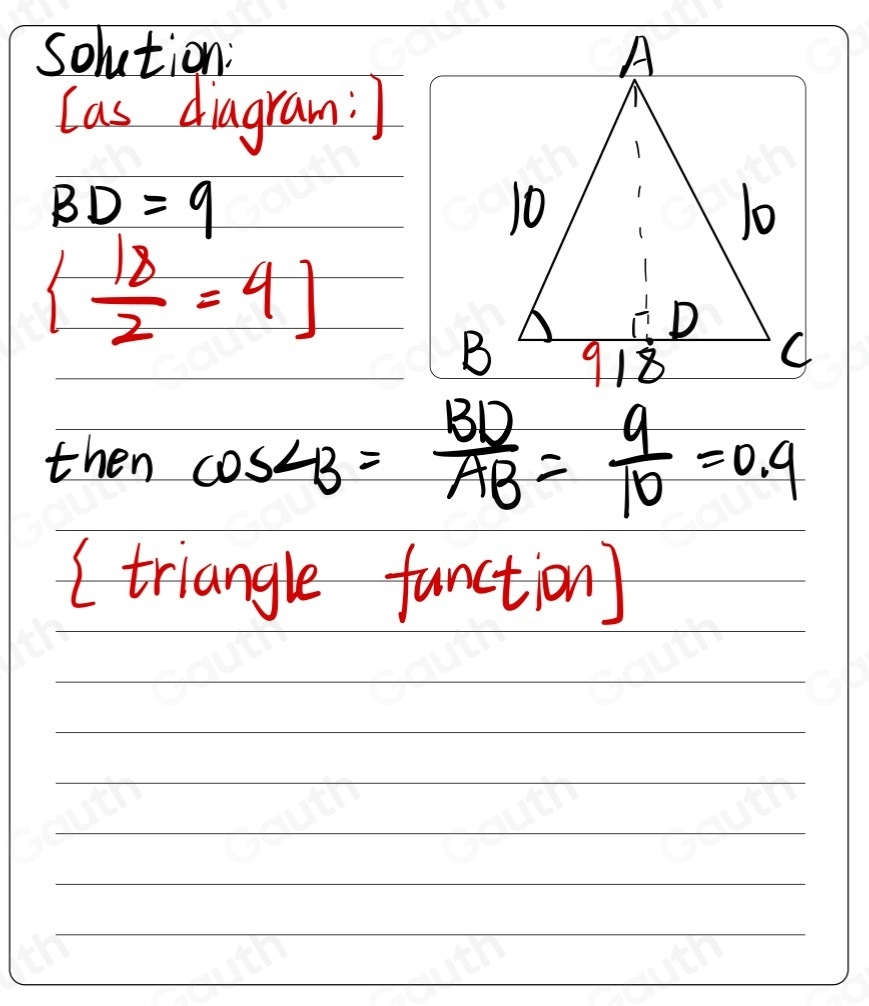 Solution:
[as diagram:]
BD = 9
{ 18/2 = 9 ]
A
10
10
B
D
C
9 18
then cos∠B = BD/AB = 9/10 = 0.9
{ triangle function ]
Gauth